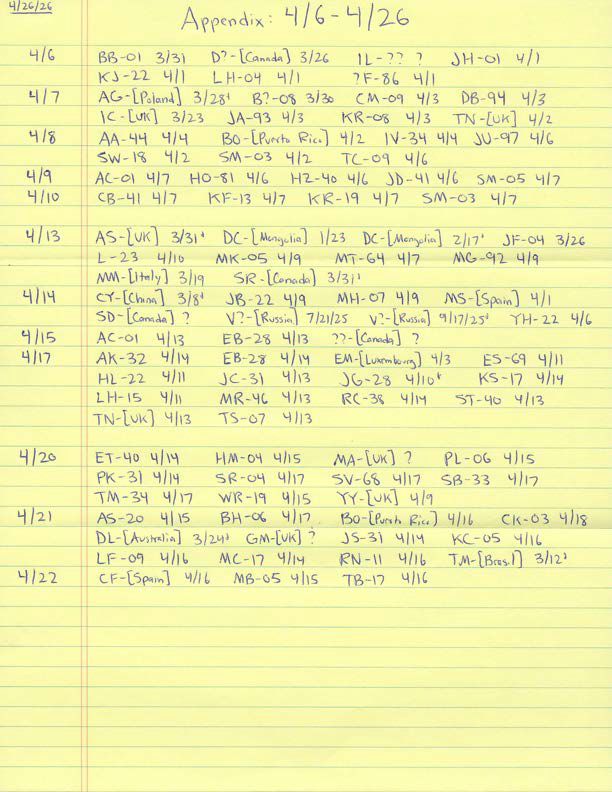 4/26/26
Appendix: 4/6-4/26
4/6 BB-01 3/31 D?-[Canada] 3/26 IL-?? ? JH-01 4/1
KJ-22 4/1 LH-04 4/1 ?F-86 4/1
4/7 AG-[Poland] 3/28⁺ B?-08 3/30 CM-09 4/3 DB-94 4/3
IC-[UK] 3/23 JA-93 4/3 KR-08 4/3 TN-[UK] 4/2
4/8 AA-44 4/4 BO-[Puerto Rico] 4/2 IV-34 4/4 JU-97 4/6
SW-18 4/2 SM-03 4/2 TC-09 4/6
4/9 AC-01 4/7 HO-81 4/6 HZ-40 4/6 JD-41 4/6 SM-05 4/7
4/10 CB-41 4/7 KF-13 4/7 KR-19 4/7 SM-03 4/7
4/13 AS-[UK] 3/31⁺ DC-[Mongolia] 1/23 DC-[Mongolia] 2/17⁺ JF-04 3/26
L-23 4/10 MK-05 4/9 MT-64 4/7 MG-92 4/9
MM-[Italy] 3/19 SR-[Canada] 3/31⁺
4/14 CY-[China] 3/8⁺ JB-22 4/9 MH-07 4/9 MS-[Spain] 4/1
SD-[Canada] ? V?-[Russia] 7/21/25 V?-[Russia] 9/17/25⁺ YH-22 4/6
4/15 AC-01 4/13 EB-28 4/13 ??-[Canada] ?
4/17 AK-32 4/14 EB-28 4/14 EM-[Luxembourg] 4/3 ES-69 4/11
HL-22 4/11 JC-31 4/13 JG-28 4/10⁺ KS-17 4/14
LH-15 4/11 MR-46 4/13 RC-38 4/14 ST-40 4/13
TN-[UK] 4/13 TS-07 4/13
4/20 ET-40 4/14 HM-04 4/15 MA-[UK] ? PL-06 4/15
PK-31 4/14 SR-04 4/17 SV-68 4/17 SB-33 4/17
TM-34 4/17 WR-19 4/15 YY-[UK] 4/9
4/21 AS-20 4/15 BH-06 4/17 BO-[Puerto Rico] 4/16 CK-03 4/18
DL-[Australia] 3/24⁺ GM-[UK] ? JS-31 4/14 KC-05 4/16
LF-09 4/16 MC-17 4/14 RN-11 4/16 TM-[Brasil] 3/12⁺
4/22 CF-[Spain] 4/16 MB-05 4/15 TB-17 4/16